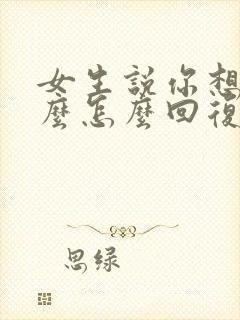 女生説你想
麼怎麼回復
思绿